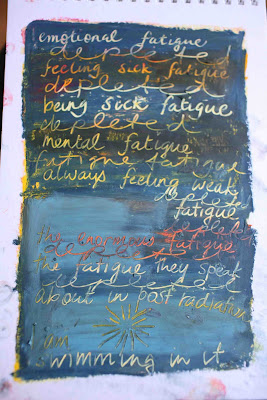 emotional fatigue
depleted
feeling sick fatigue
depleted
being sick fatigue
depleted
mental fatigue
fatigue fatigue
always feeling weak
depleted
fatigue
the enormous fatigue
depleted
the fatigue they speak
about in post radiation
I am
swimming in it